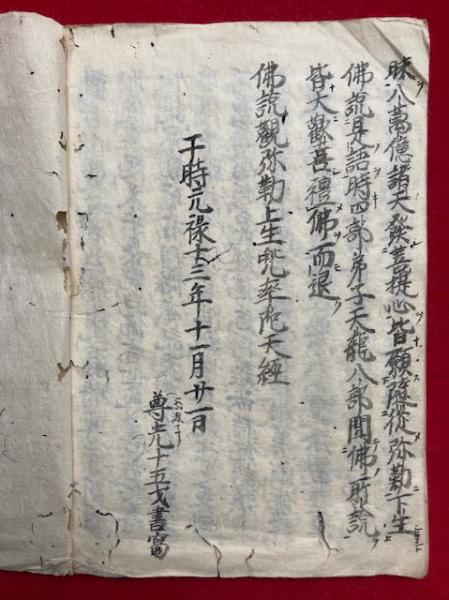 昧八萬億諸天發菩提心皆願隨從弥勒下生
佛說是語時四部弟子天龍八部聞佛所說
皆大歡喜禮佛而退
佛說觀弥勒上生兜率陀天經
于時元禄十三年十一月廿一日
尊光十五才書寫